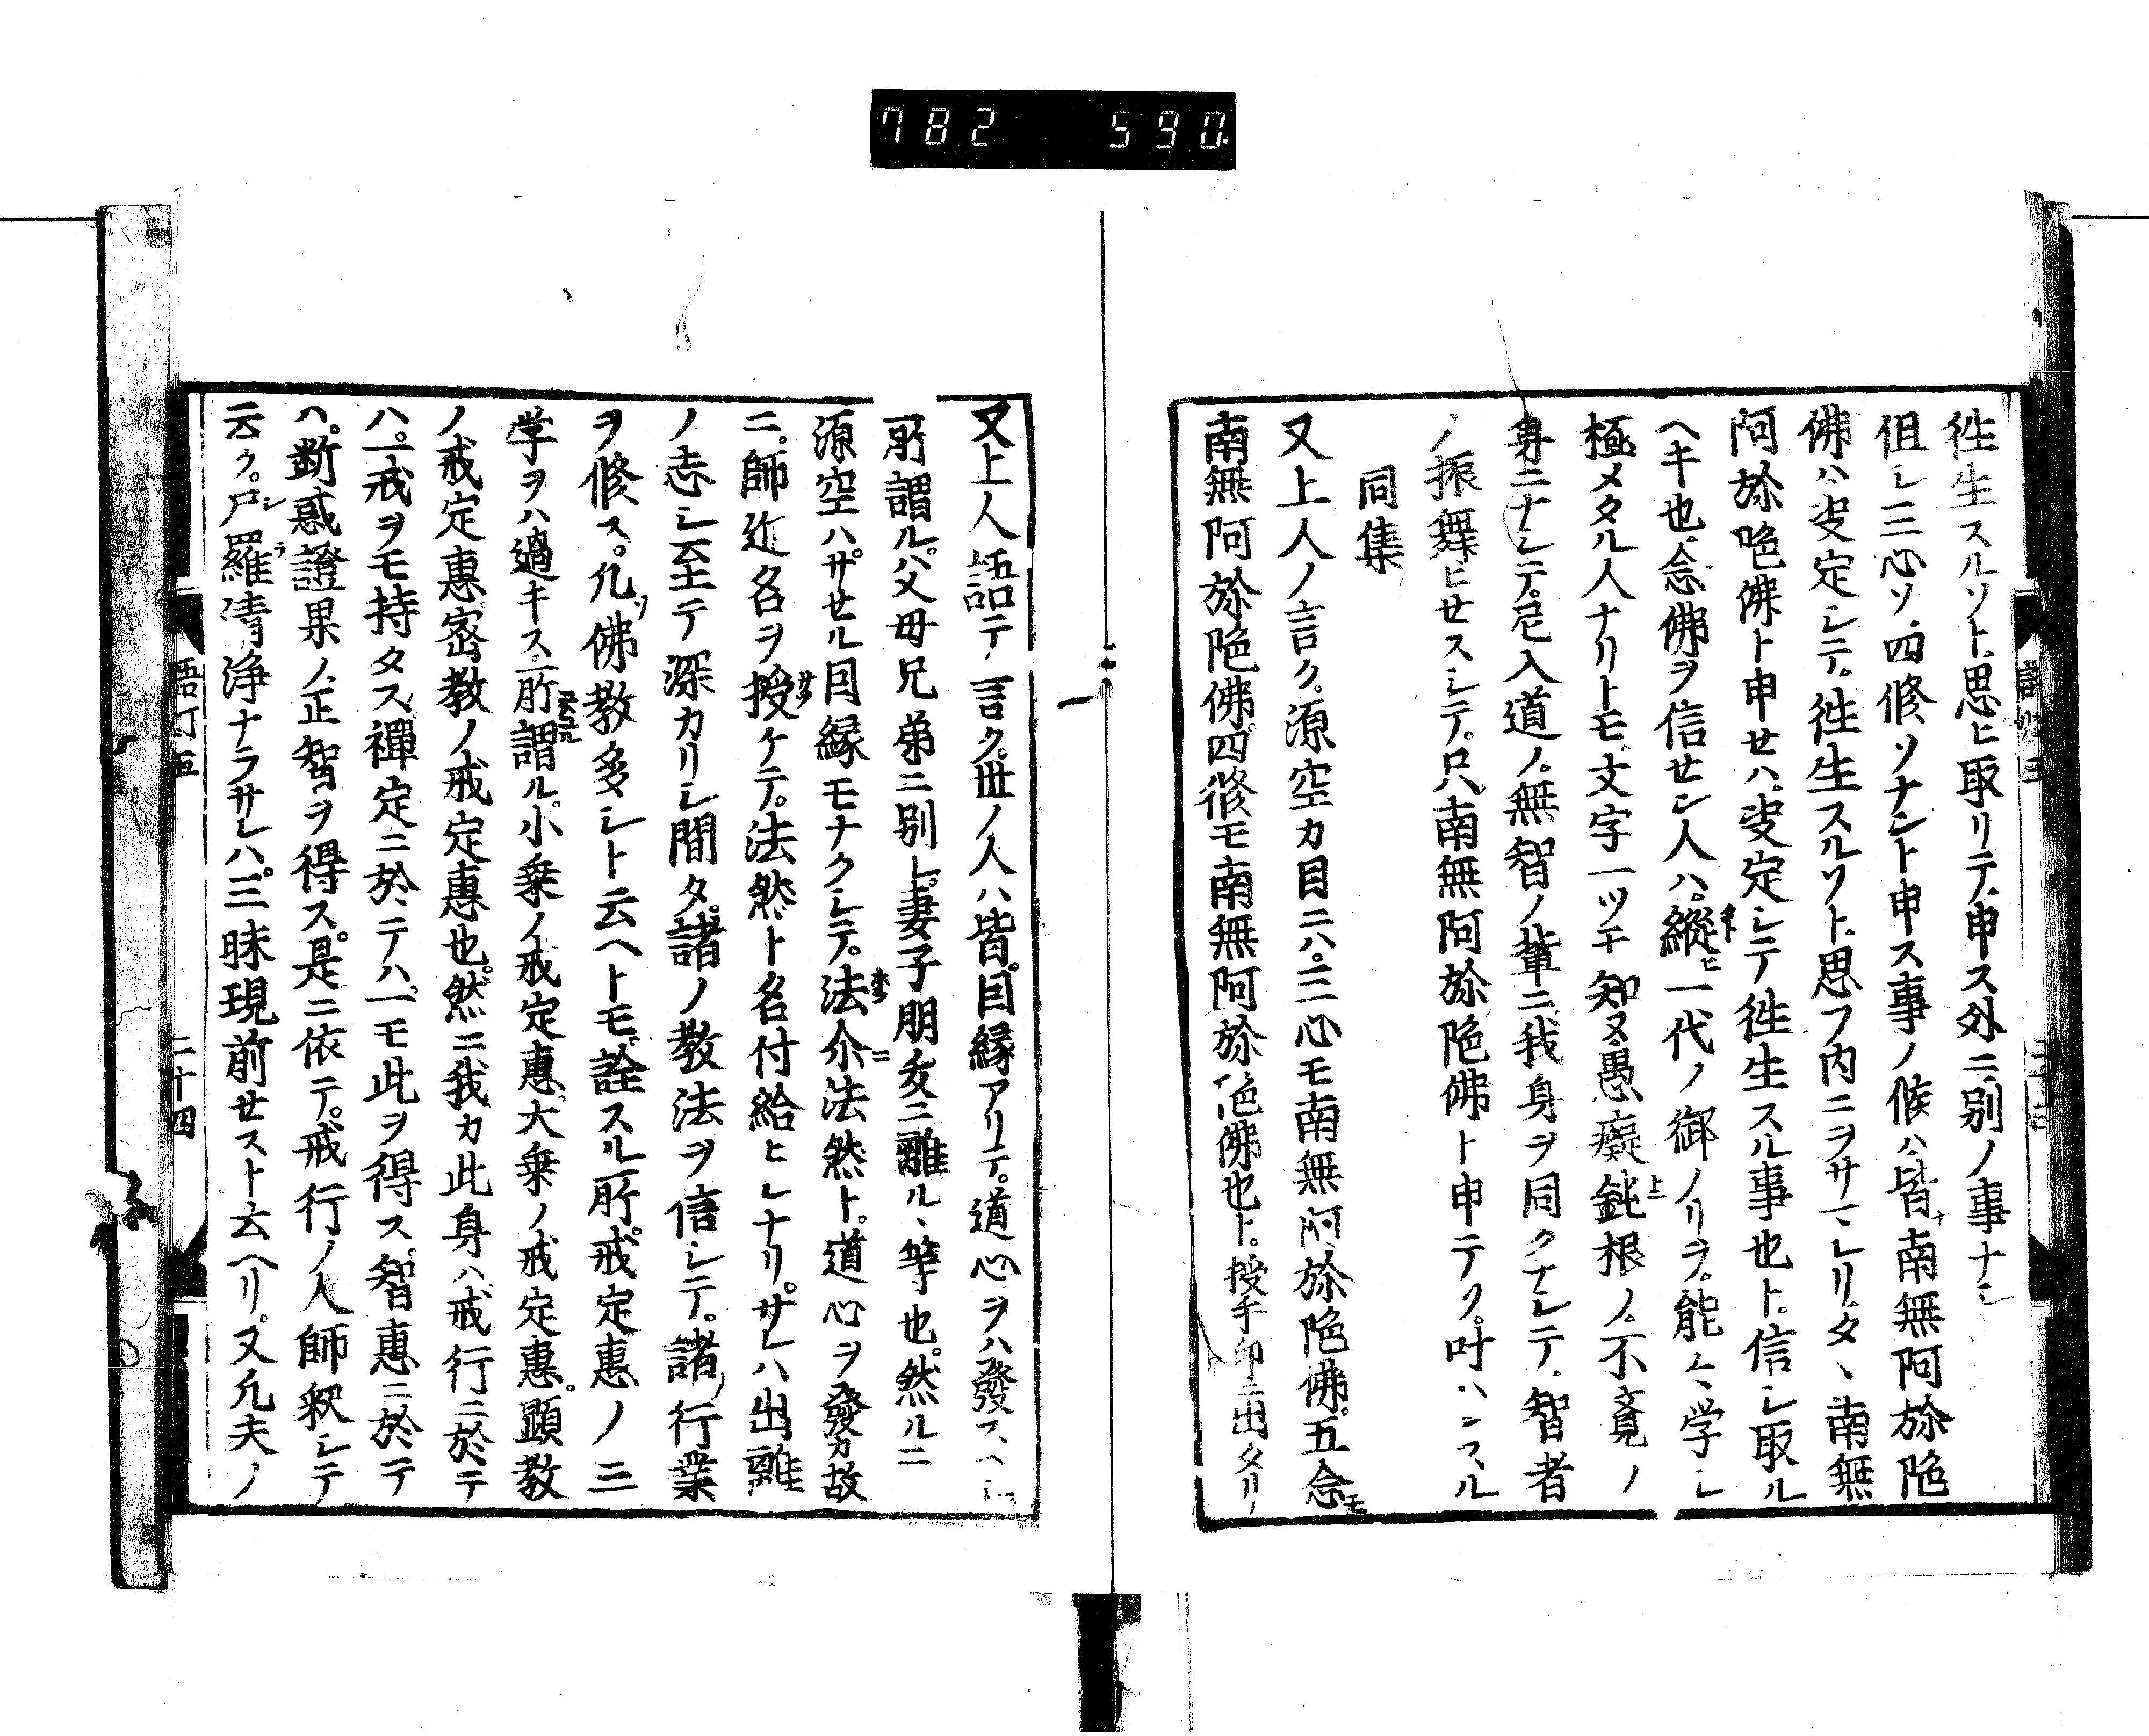 782 590.
往生スルソト思ヒ取リテ申ス外ニ別ノ事ナシ
但レ三心ソ四修ソナント申ス事ノ候ハ皆南無阿弥陀
佛ハ决定シテ往生スルソト思フ内ニヲサマレリタヽ南無
阿弥陀佛ト申セハ决定シテ往生スル事也ト信シ取ル
ヘキ也念佛ヲ信セン人ハ縦ヒ一代ノ御ノリヲ能々学シ
極メタル人ナリトモ文字一ツモ知ヌ愚癡鈍根ノ不覚ノ
身ニナシテ尼入道ノ無智ノ輩ニ我身ヲ同クナシテ智者
ノ振舞ヒセスシテ只南無阿弥陀佛ト申テソ叶ハンスル
同集
又上人ノ言ク源空カ目ニハ三心モ南無阿弥陀佛五念モ
南無阿弥陀佛四修モ南無阿弥陀佛也ト授手印ニ出タリ
又上人語テ言ク世ノ人ハ皆因縁アリテ道心ヲハ發スヘシ
所謂ル父母兄弟ニ別レ妻子朋友ニ離ルヽ等也然ルニ
源空ハサセル因縁モナクシテ法尓法然ト道心ヲ發カ故
ニ師近名ヲ授ケテ法然ト名付給ヒシナリサレハ出離
ノ志シ至テ深カリシ間タ諸ノ教法ヲ信シテ諸ノ行業
ヲ修ス凡ソ佛教多シト云ヘトモ詮スル所戒定惠ノ三
学ヲハ過キス所謂ル小乗ノ戒定惠大乗ノ戒定惠顕教
ノ戒定惠密教ノ戒定惠也然ニ我カ此身ハ戒行ニ於テ
ハ一戒ヲモ持タス禪定ニ於テハ一モ此ヲ得ス智惠ニ於テ
ハ断惑證果ノ正智ヲ得ス是ニ依テ戒行ノ人師釈シテ
云ク尸羅清浄ナラサレハ三昧現前セスト云ヘリ又凡夫ノ
語灯五
二十四